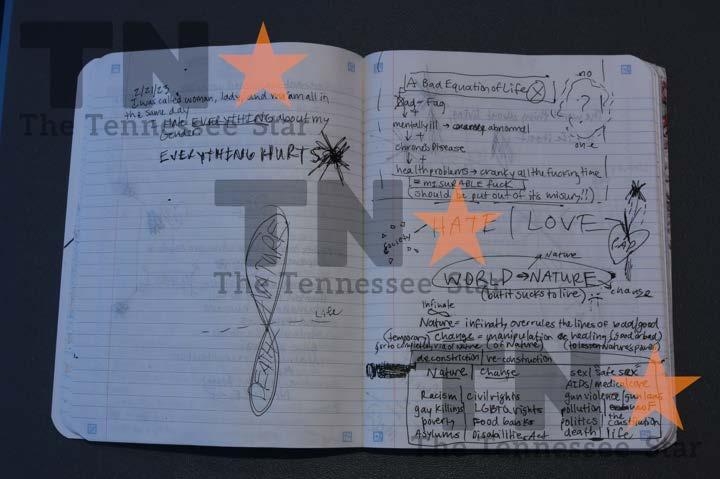 2/21/23
I was called woman, lady, and ma'am all in
the same day
EVERYTHING about my
Gender
EVERYTHING HURTS
NATURE
DEATH
Life
A Bad Equation of Life
Fag
mentally ill → abnormal
+
chrons Disease
+
health problems → cranky all the fucking time
= misurable fuck
should be put out of its misury!!)
no
?
one
HATE | LOVE
society
Nature
WORLD → NATURE
(but it sucks to live)
change
Infinate
Nature = infinatly overrules the lines of bad/good
(temporary) change = manipulation or healing (good or bad)
of Nature) (to lessen Nature's power)
deconstriction / re-construction
Nature | change
Racism | civil rights
gay killings | LGBTQ rights
poverty | Food banks
Asylums | Disabilities Act
sex / safe sex
AIDS / medical care
gun violence / gun laws
pollution
politics / the constitution
death / life
TN
The Tennessee Star
TN
The Tennessee Star
TN
The Tennessee Star